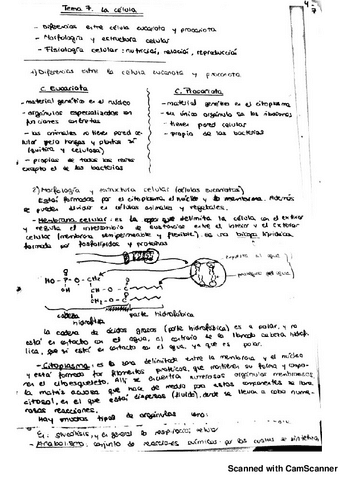 Tema 7. La célula
- Diferencias entre célula eucariota y procariota
- Morfología y estructura celular
- Fisiología celular: nutrición, relación, reproducción
1) Diferencias entre la célula eucariota y procariota
C. Eucariota
- material genético en el núcleo
- orgánulos especializados en funciones concretas
- los animales no tienen pared celular pero hongos y plantas sí (quitina y celulosa)
- propias de todos los reinos excepto el de las bacterias
C. Procariota
- material genético en el citoplasma
- su único orgánulo son los ribosomas
- tienen pared celular
- propia de las bacterias
2) Morfología y estructura celular (células eucariotas)
Están formadas por el citoplasma, el núcleo y la membrana. Además
se pueden dividir en células animales y vegetales.
- Membrana celular: es la capa que delimita la célula en el exterior
y regula el intercambio de sustancias entre el interior y el exterior
celular (membrana semipermeable y flexible). Es una bicapa lipídica
formada por fosfolípidos y proteínas
HO - P - O - CH2
OH
CH - O - C
CH2 - O - C
cabeza hidrofílica
parte hidrofóbica
La cadena de ácidos grasos (parte hidrofóbica) es apolar, y no
está en contacto con el agua, al contrario de la llamada cabeza hidrofílica,
que sí está en contacto con el agua, ya que es polar.
- Citoplasma: es la zona delimitada entre la membrana y el núcleo
y está formado por filamentos proteicos, que mantienen su forma y
en el citoesqueleto. Allí se encuentra numerosos orgánulos membranosos
la matriz acuosa que hace de medio para estos componentes se llama
citosol, en el que está dispersas (fluido), donde se lleva a cabo numerosas
reacciones.
Hay muchos tipos de orgánulos
Ej: glucólisis, y en general la respiración celular
- Anabolismo: conjunto de reacciones químicas por las cuales se sintetiza
Scanned with CamScanner